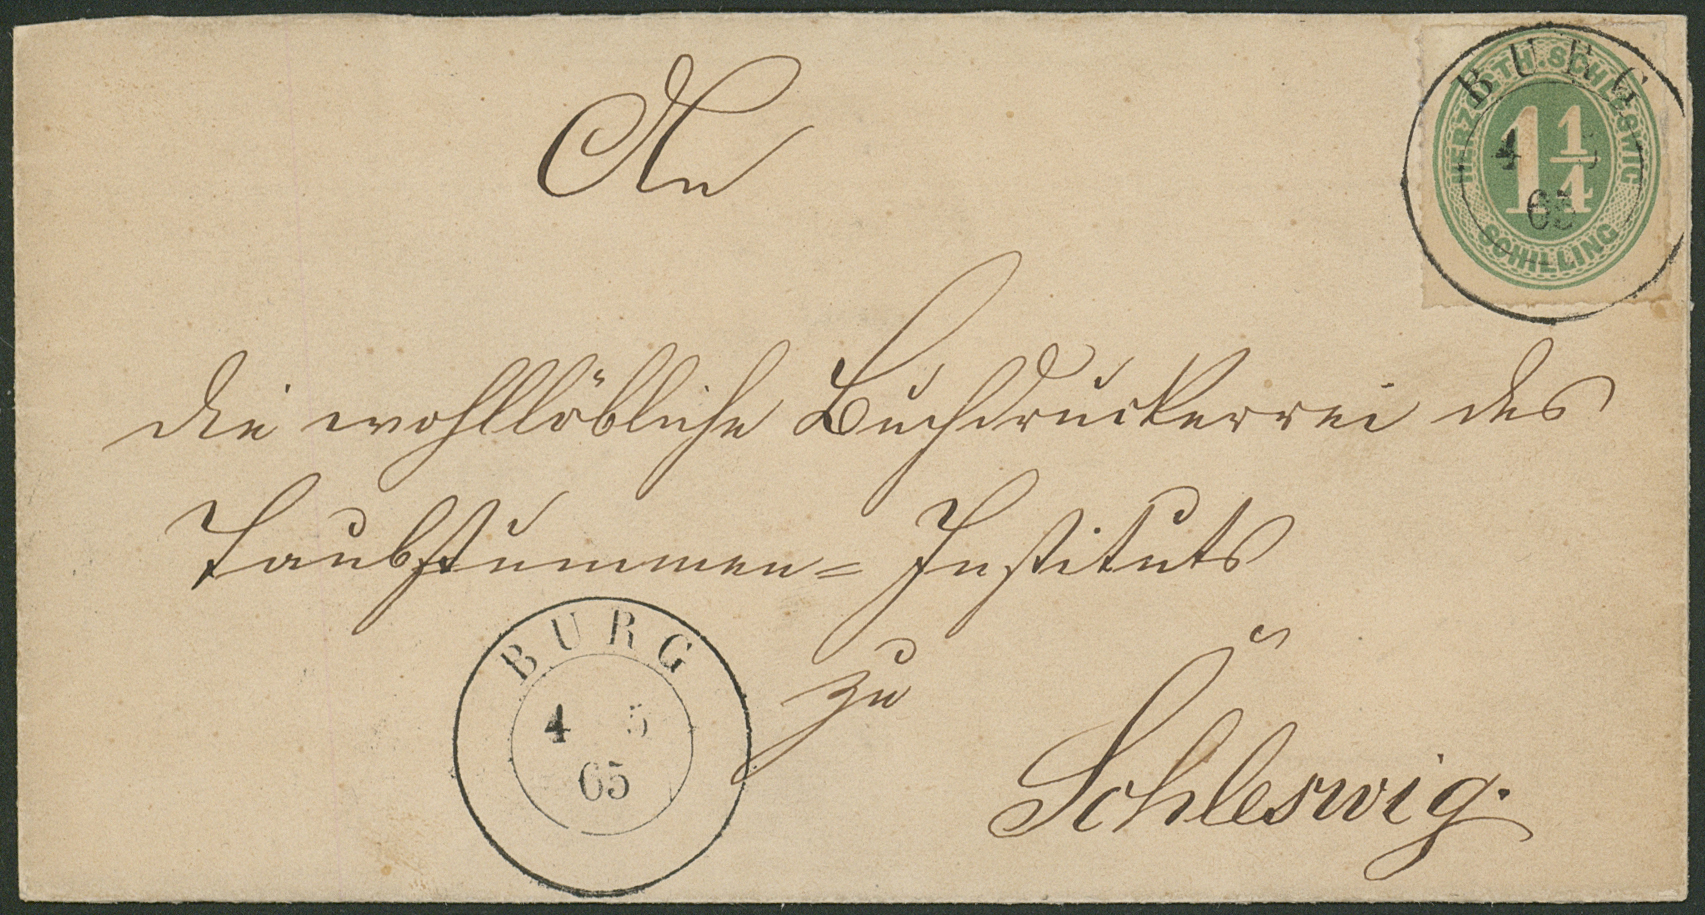 An
HERZOGTH. SCHLESWIG
1 1/4
SCHILLING
BURG
4 5
65
die wohllöbliche Buchdruckerrei des
Taubstummen= Instituts
zu
Schleswig.
BURG
4 5
65